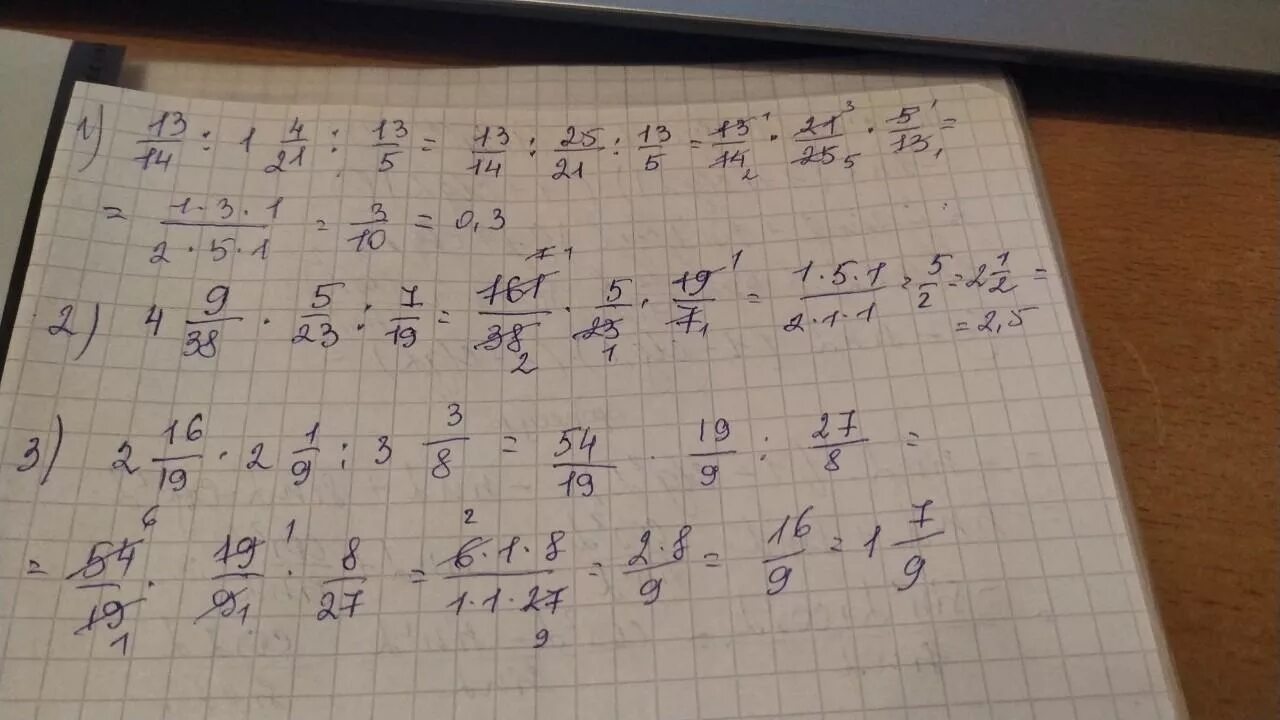 1) 13/14 : 1 4/21 : 13/5 = 13/14 : 25/21 : 13/5 = 13¹/14₂ · 21³/25₅ · 5¹/13₁ =
= 1·3·1/2·5·1 = 3/10 = 0,3
2) 4 9/38 · 5/23 : 7/19 = 161⁷ ¹/38₂ · 5/23₁ · 19¹/7₁ = 1·5·1/2·1·1 = 5/2 = 2 1/2 =
= 2,5
3) 2 16/19 · 2 1/9 : 3 3/8 = 54/19 · 19/9 : 27/8 =
= 54⁶/19₁ · 19¹/9₁ · 8/27 = 6²·1·8/1·1·27₉ = 2·8/9 = 16/9 = 1 7/9